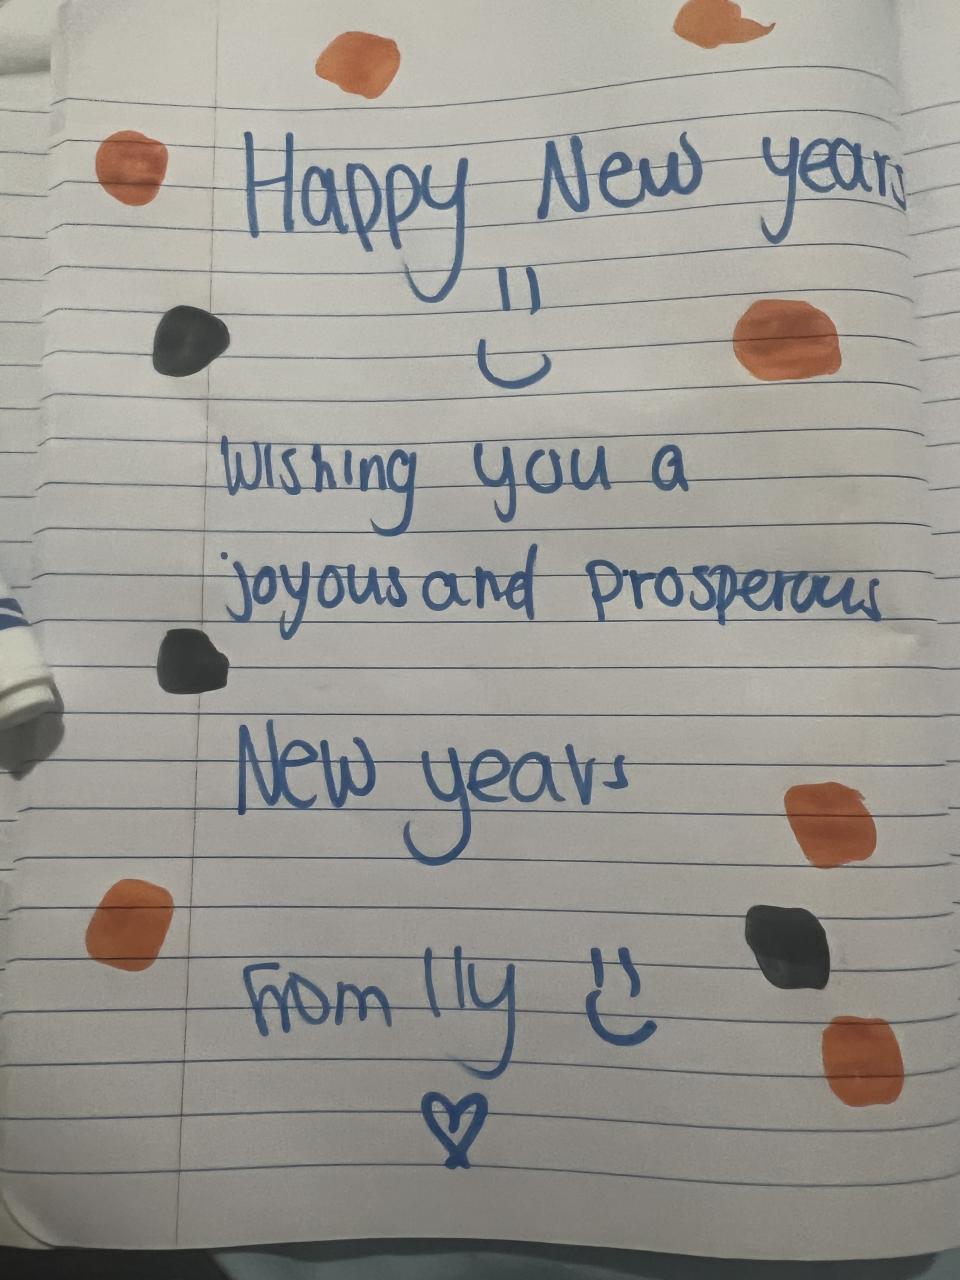 Happy New years
Wishing you a
joyous and prosperous
New years
From lly